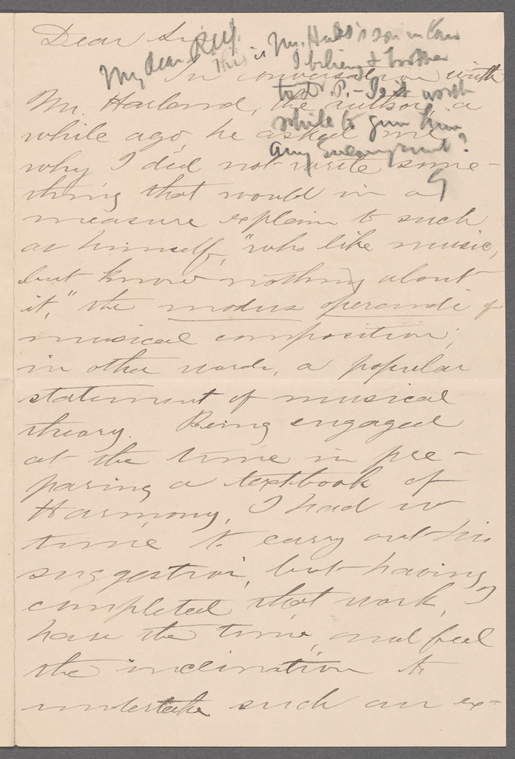 Dear Sir,
My dear R.U.J.
This is Mr. Hall's son in law
I believe & brother
to P. - Is it worth
while to give him
any encouragement?
G
In conversation with
Mr. Harland, the author, a
while ago, he asked me
why I did not write some-
thing that would in a
measure explain to such
as himself, "who like music,
but know nothing about
it," the modus operandi of
musical composition;
in other words, a popular
statement of musical
theory. Being engaged
at the time in pre-
paring a textbook of
Harmony, I had no
time to carry out his
suggestion, but having
completed that work, I
have the time, and feel
the inclination to
undertake such an ex-